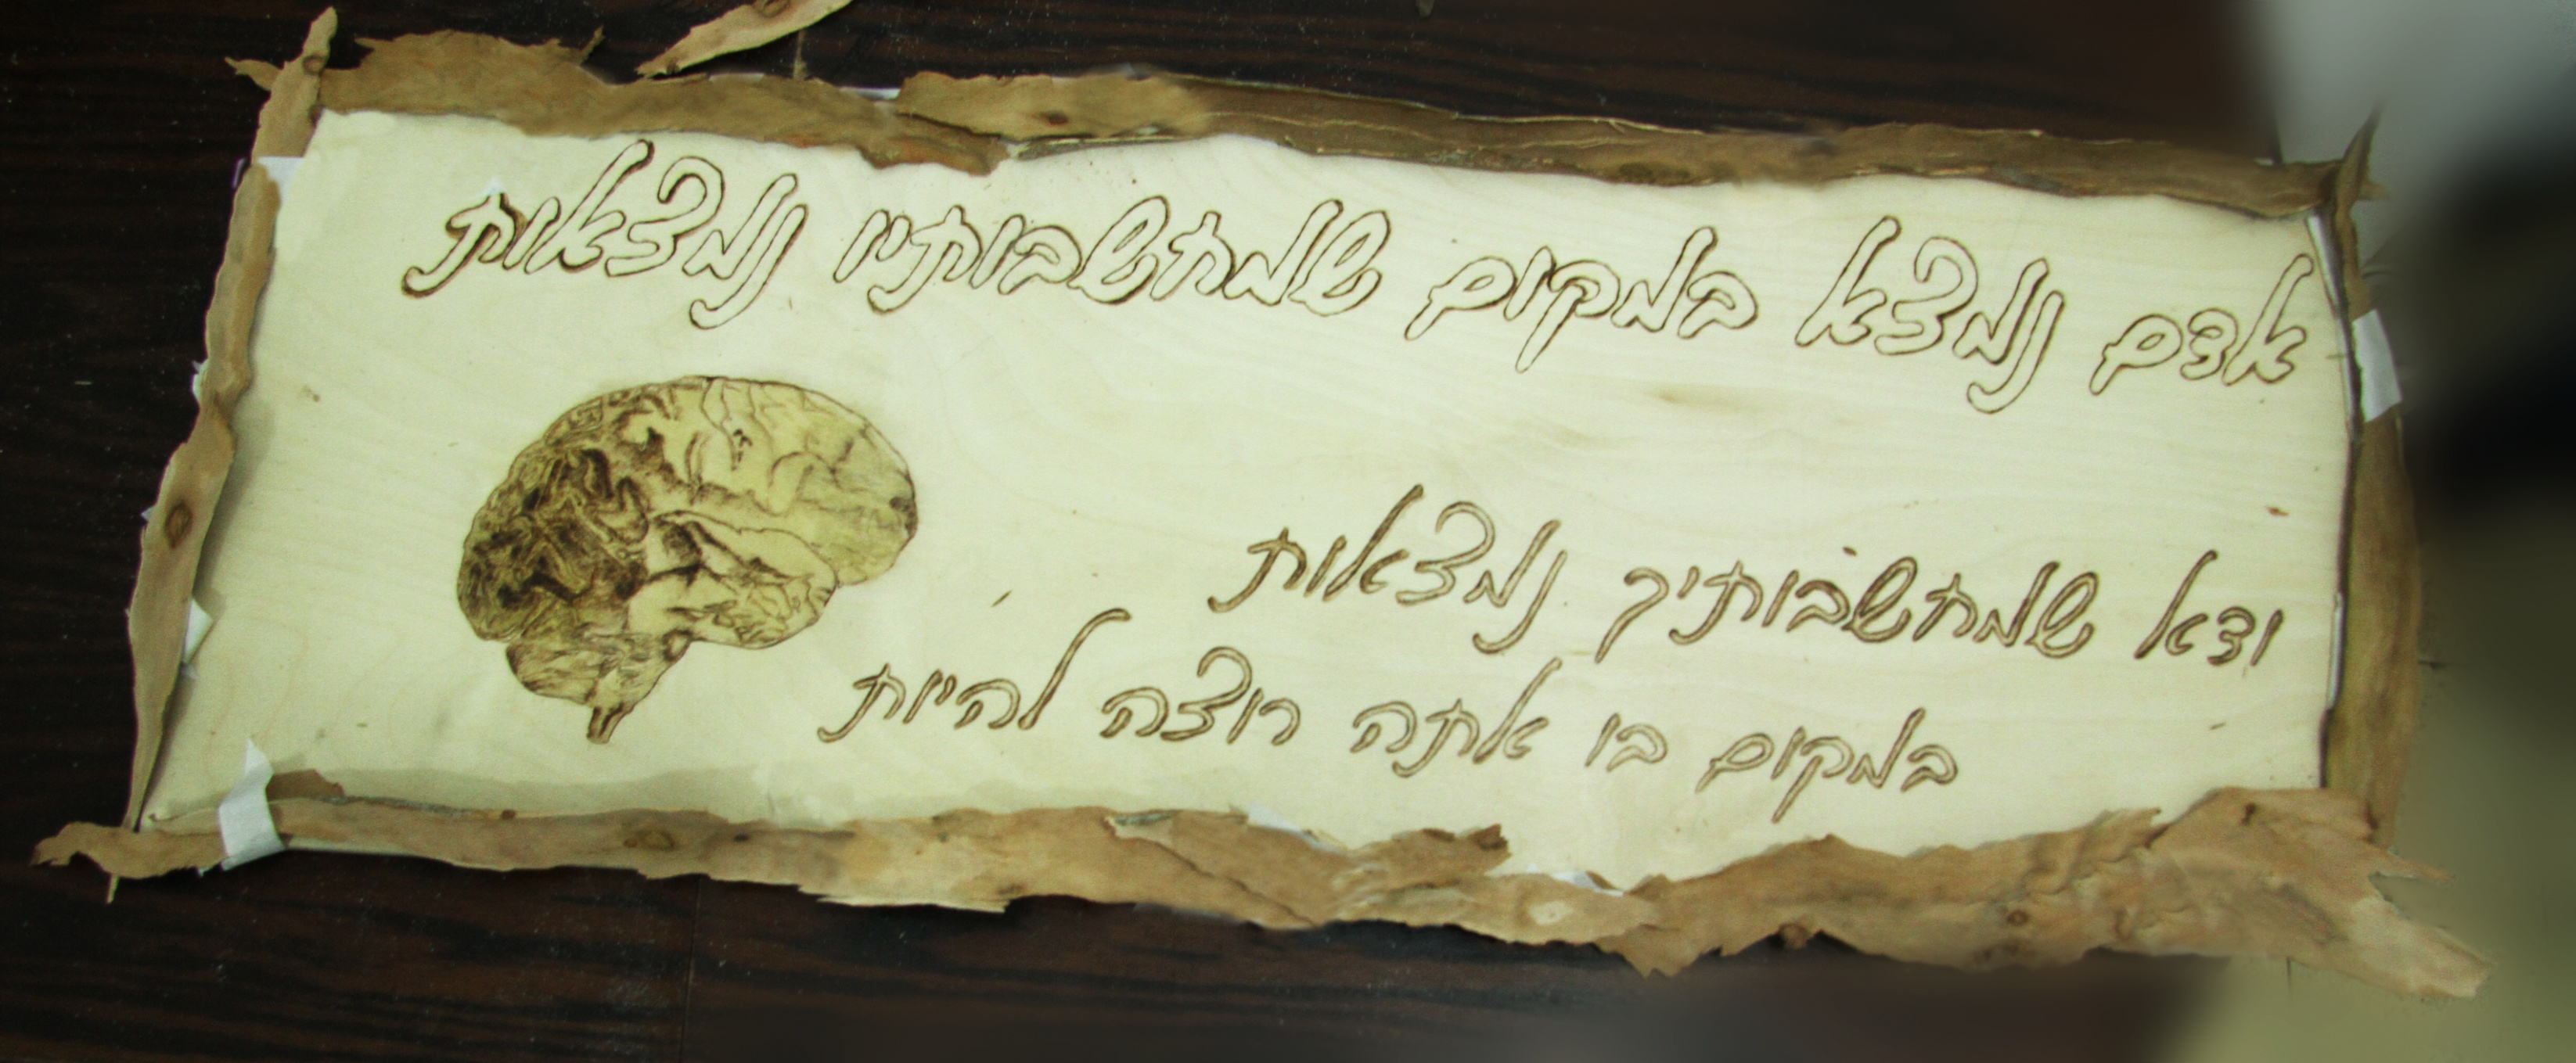 אדם נמצא במקום שמחשבותיו נמצאות
ודא שמחשבותיך נמצאות
במקום בו אתה רוצה להיות